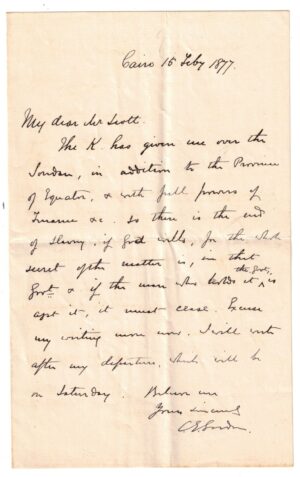 Cairo 15 Feby 1877.
My dear Mr Scott.
The K. has given me over the
Soudan, in addition to the Province
of Equator, & with full powers of
Finance &c. so there is the end
of Slavery, if God wills, for the whole
secret of the matter is, in that
the Govt
Govt. & if the man who holds it is
agst it, it must cease. Excuse
my writing more now. I will write
after my departure, which will be
on Saturday. Believe me
Yours sincerely
C. E. Gordon.